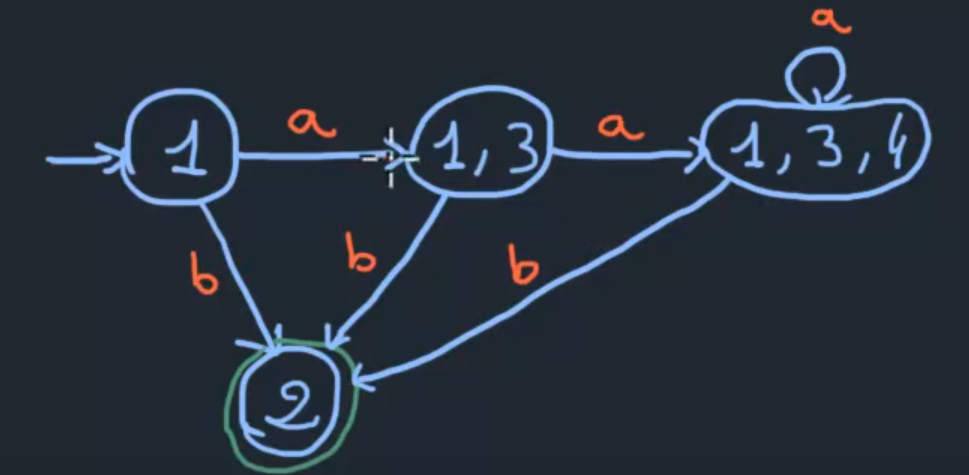 a
1 a 1, 3 a 1, 3, 4
b b b
2